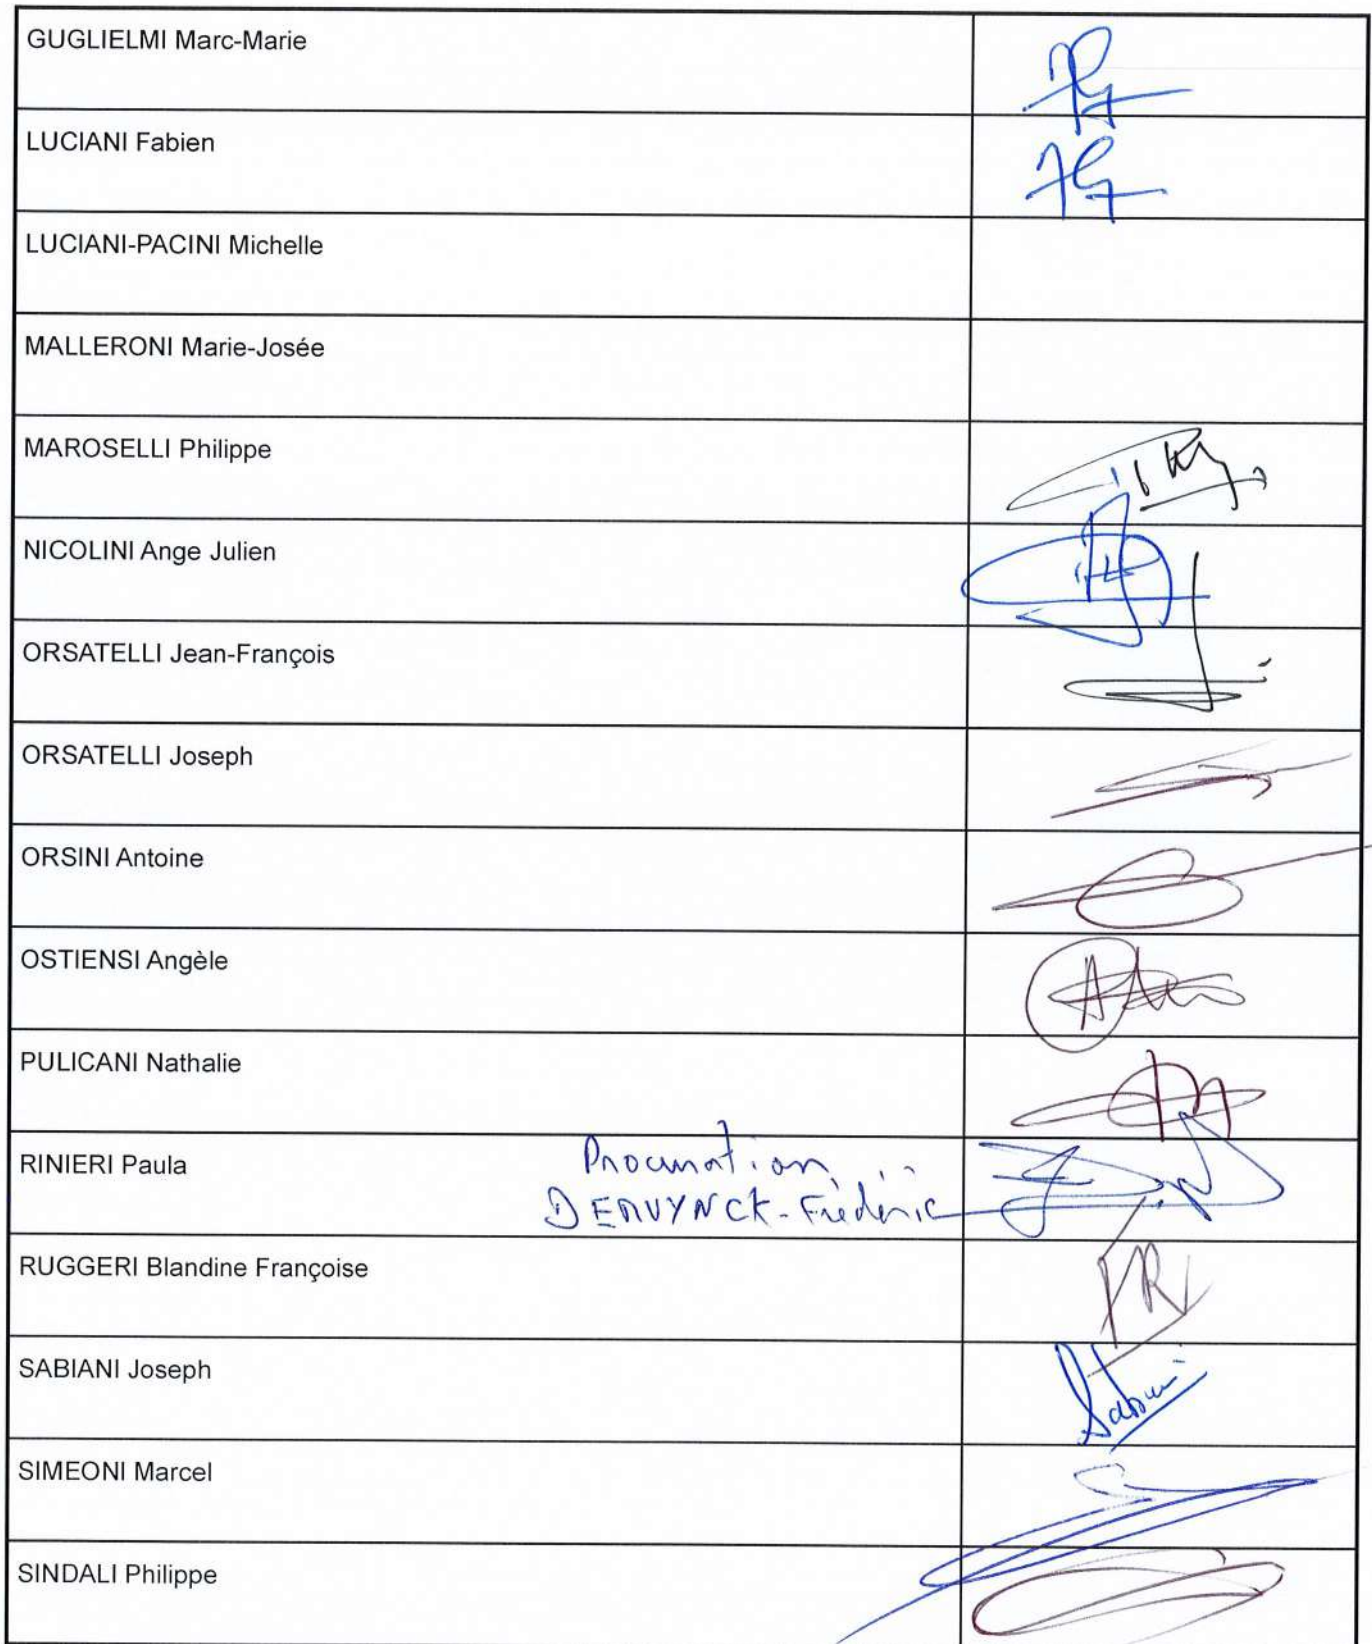 GUGLIELMI Marc-Marie
LUCIANI Fabien
LUCIANI-PACINI Michelle
MALLERONI Marie-Josée
MAROSELLI Philippe
NICOLINI Ange Julien
ORSATELLI Jean-François
ORSATELLI Joseph
ORSINI Antoine
OSTIENSI Angèle
PULICANI Nathalie
RINIERI Paula
Procuration
DERVYNCK-Frédéric
RUGGERI Blandine Françoise
SABIANI Joseph
SIMEONI Marcel
SINDALI Philippe